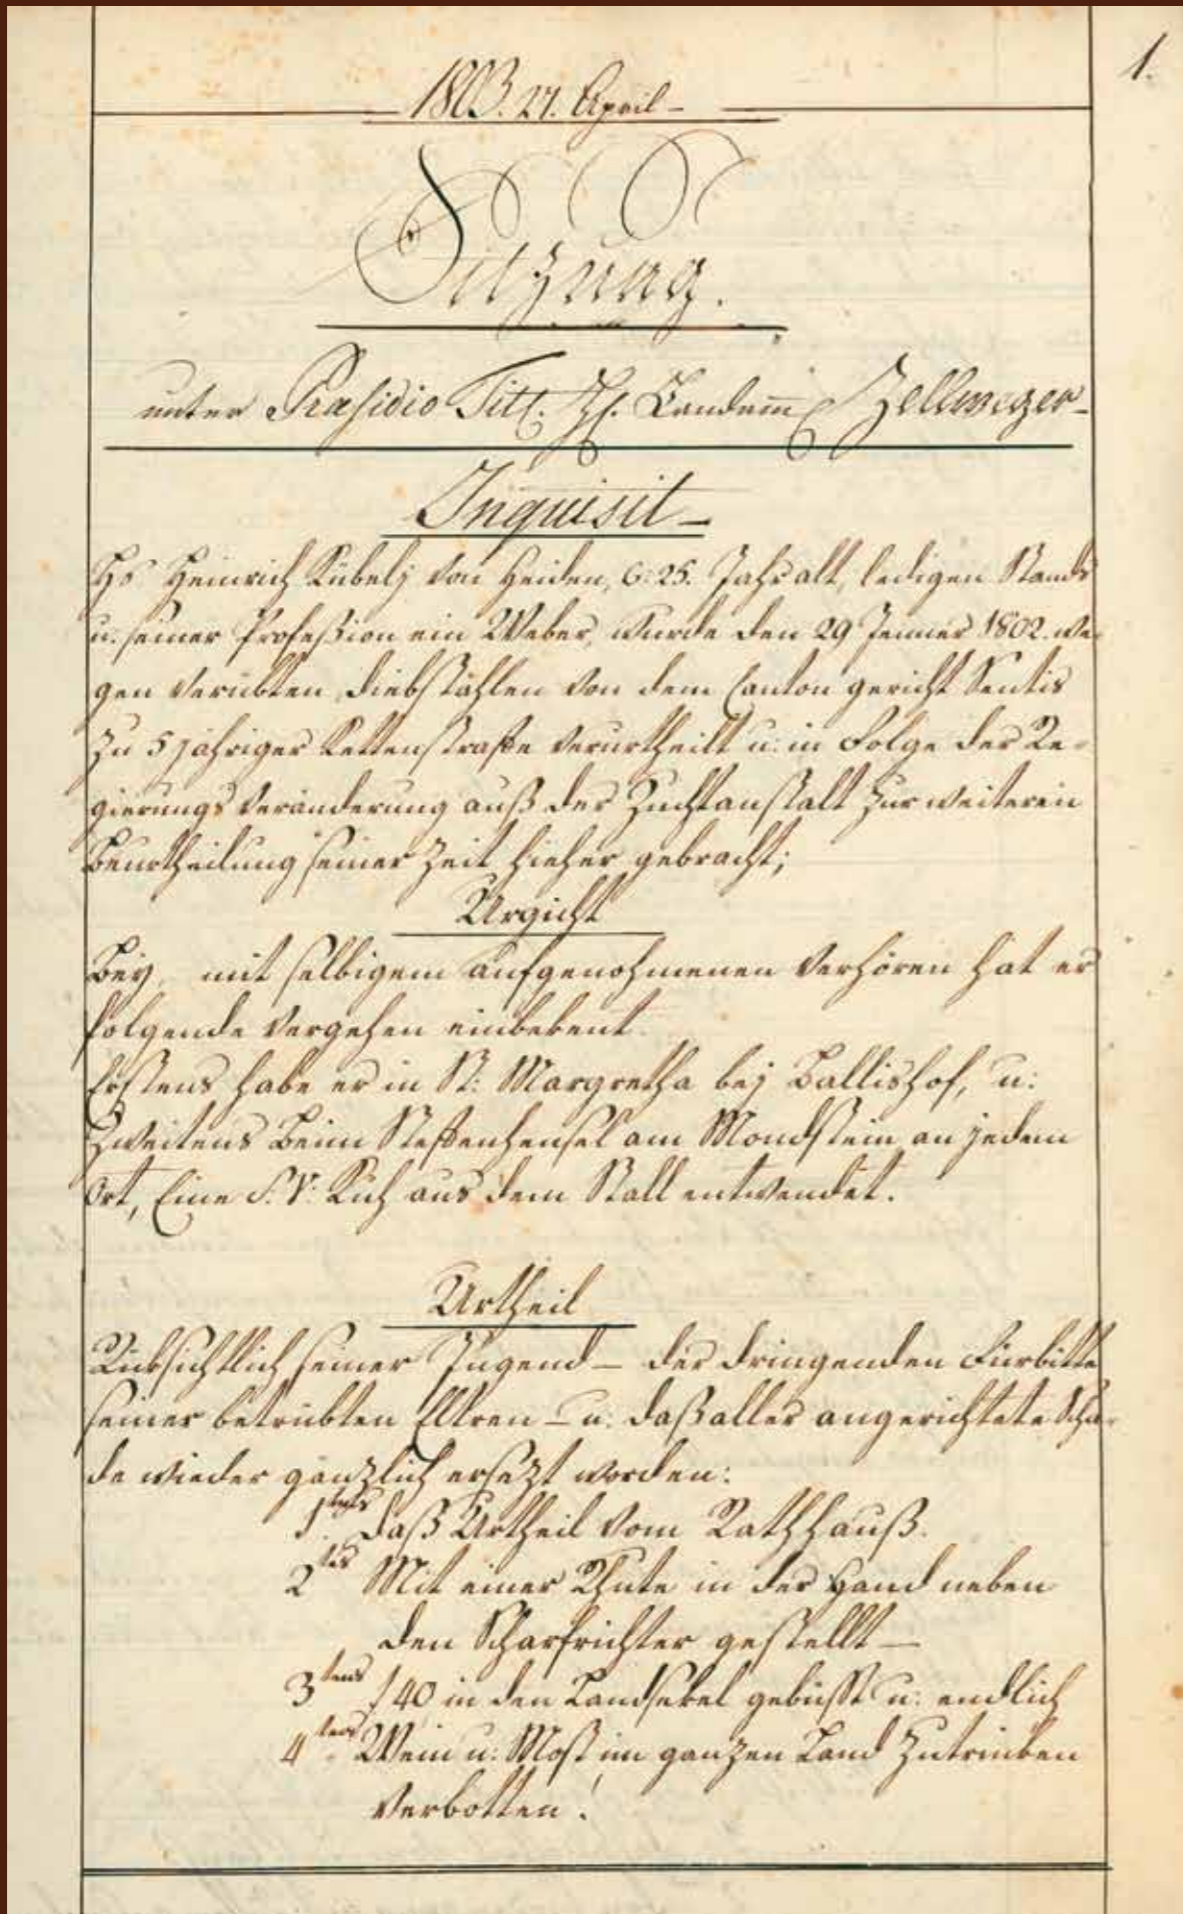 1.
1803. 27. April –
Sitzung.
unter Præsidio Titl. Hh. Landamm Zellweger –
Inquisit –
Hs Heinrich Kübelj von Heiden, C: 25. Jahr alt, ledigen Stands
u. seiner Profeßion ein Weber, wurde den 29 Jenner 1802. we-
gen verübten Diebstählen von dem Canton gericht Sentis
zu 5 jähriger Kettenstrafe verurtheilt u: in Folge der Re-
gierungs Veränderung auß der Zuchtanstalt zur weiteren
Beurtheilung seiner Zeit hieher gebracht;
Urgicht
Bey, mit selbigem aufgenohmenen Verhören hat er
folgende Vergehen einbekent
Erstens habe er in St: Margretha bej Ballishof, u:
Zweitens beim Steffenhensel am Mondstein an jedem
Ort, Eine S. V. Kuh aus dem Stall entwendet.
Urtheil
Rüksichtlich seiner Jugend – der dringenden Fürbitte
seiner betrübten Eltren – u. daß aller angerichtete Scha-
de wieder gänzlich ersezt worden:
1tens daß Urtheil vom Rathhauß.
2tes Mit einer Ruhte in der Hand neben
den Scharfrichter gestellt –
3tens f 40 in den Landsekel gebüßt u: endlich
4tens Wein u: Most im ganzen Land Zutrinken
verbotten!